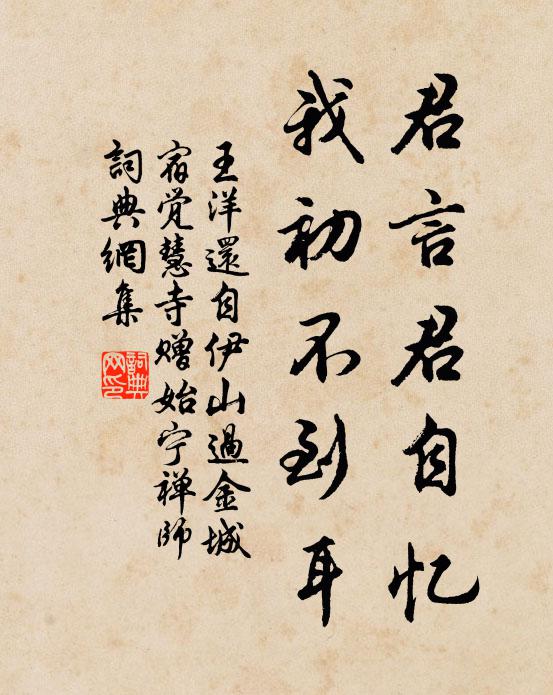 君言君自忆
我初不到耳
王洋還自伊山過金城
宿觉慧寺赠始宁禅師
詞典網集
詞典
网印